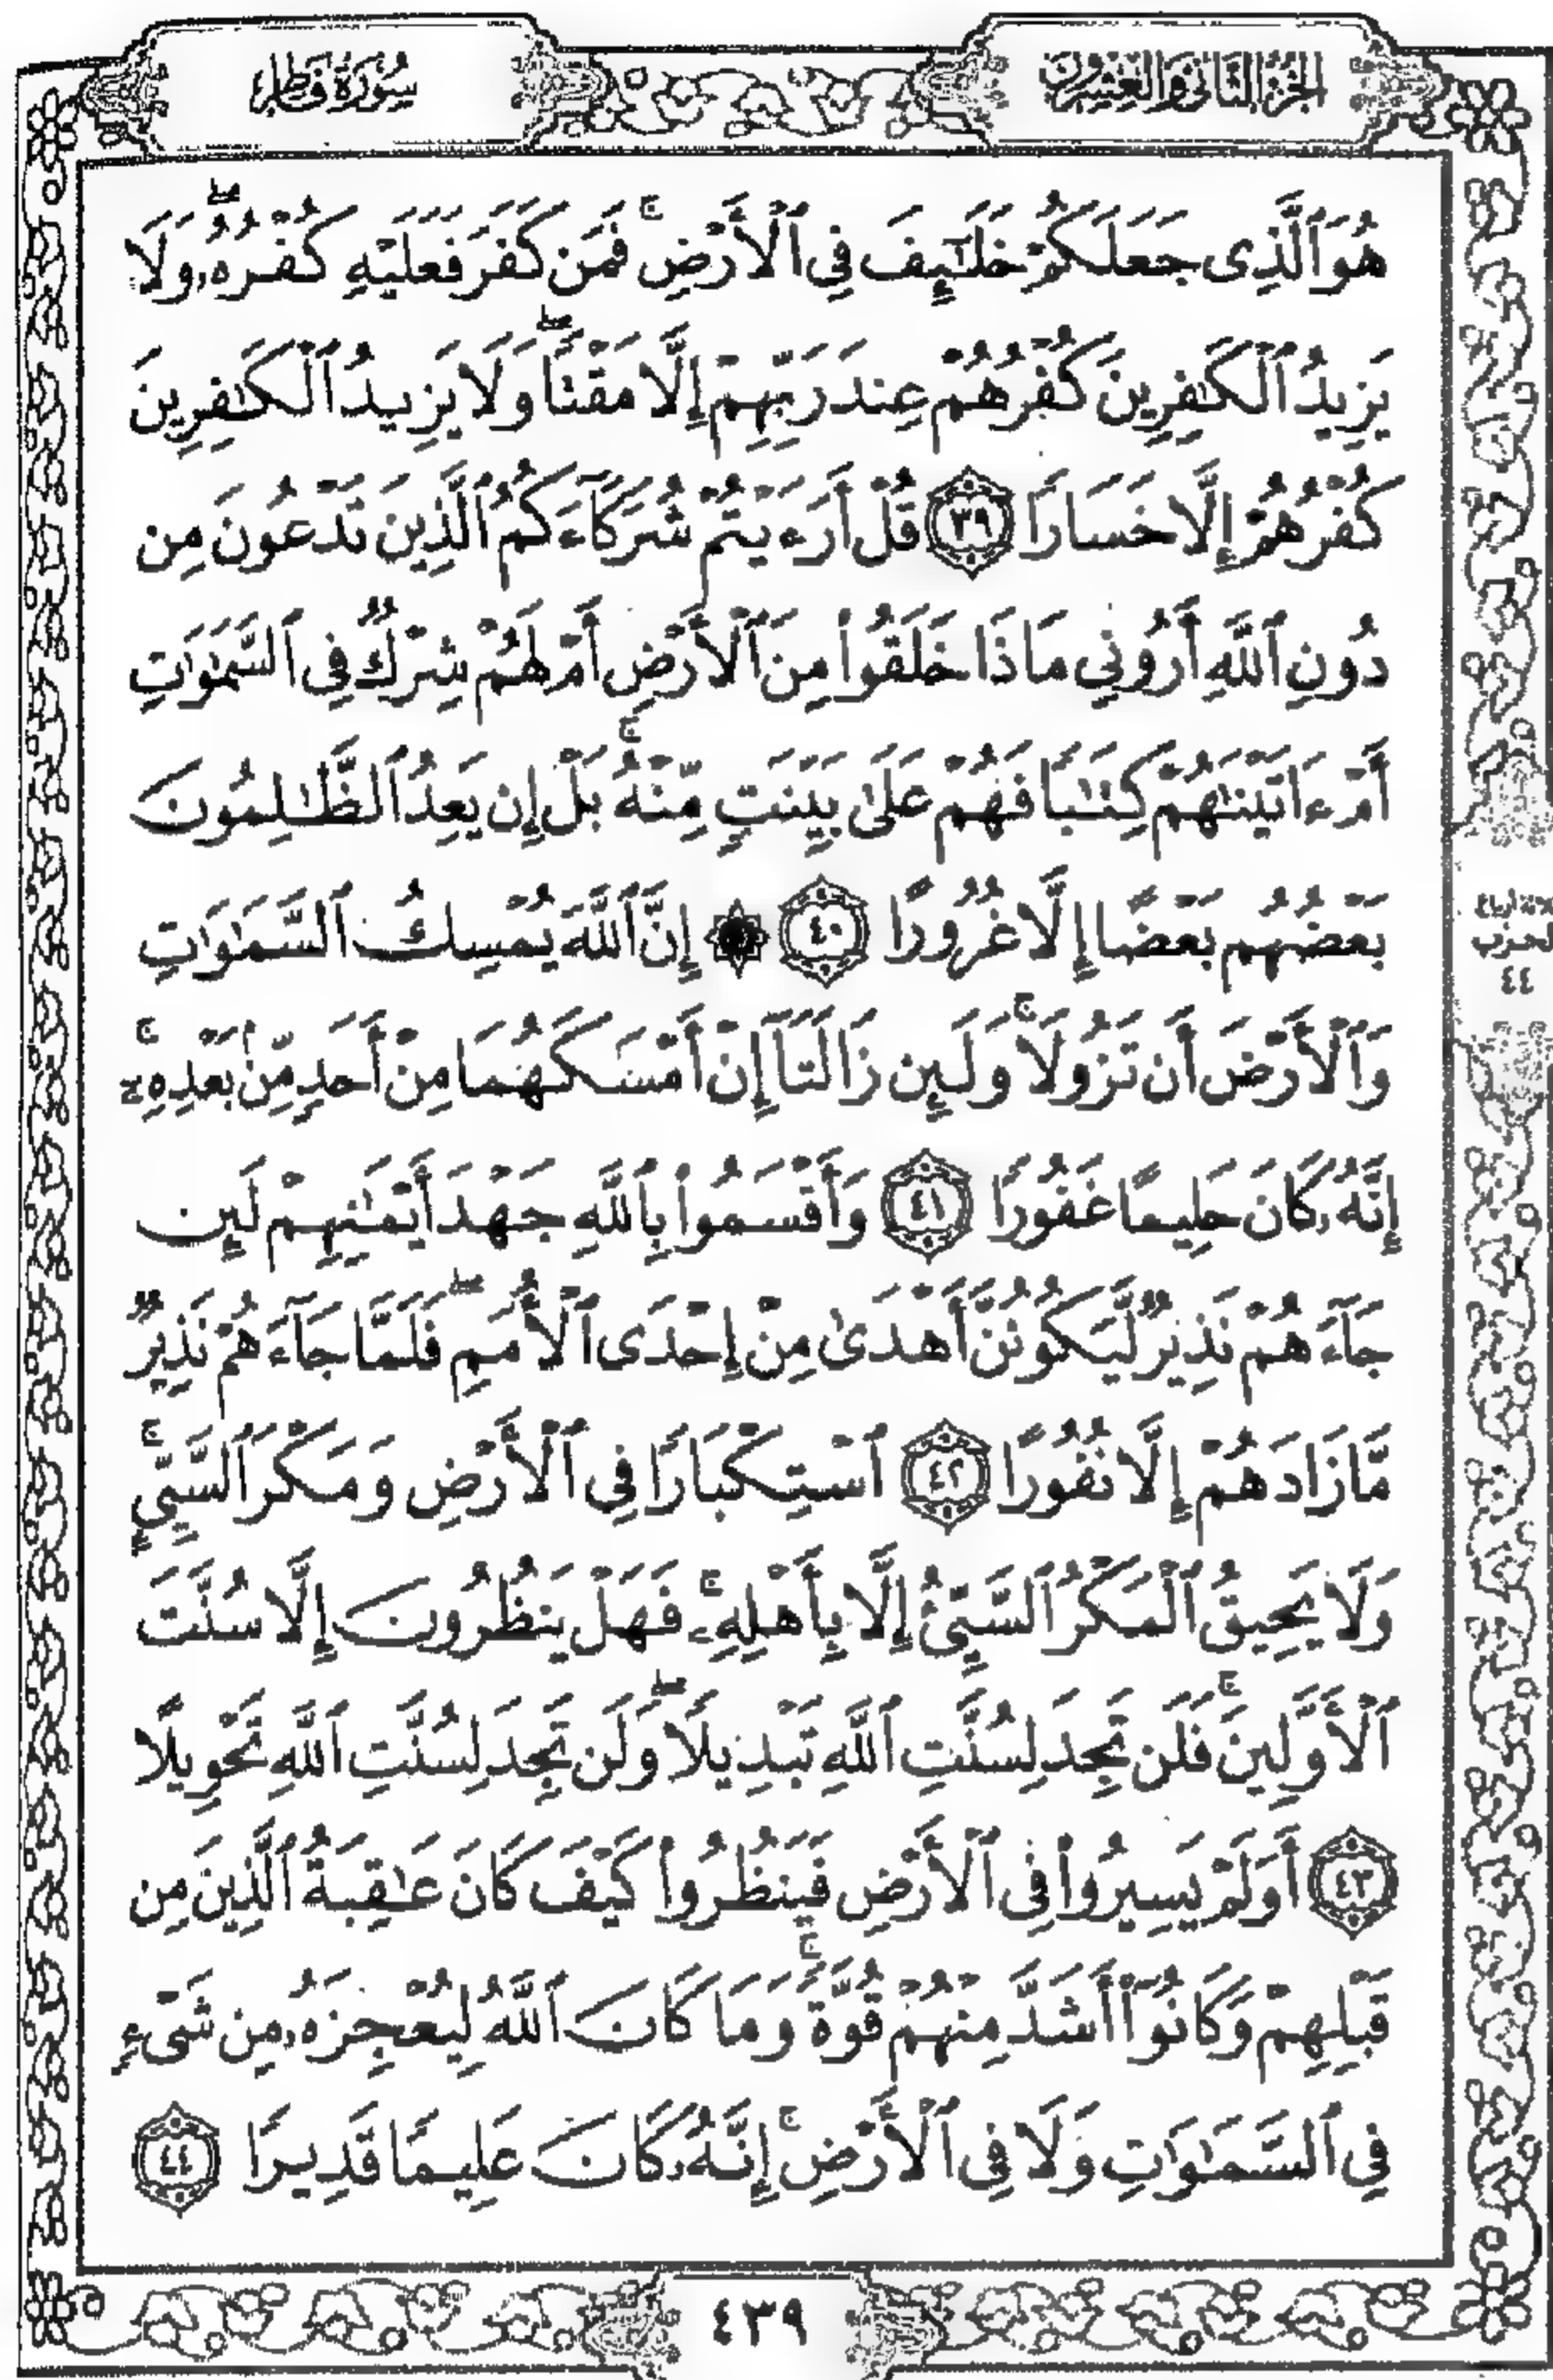 الجزء الثاني والعشرون
سورة فاطر
هُوَ ٱلَّذِى جَعَلَكُمْ خَلَـٰٓئِفَ فِى ٱلْأَرْضِ ۚ فَمَن كَفَرَ فَعَلَيْهِ كُفْرُهُۥ ۖ وَلَا
يَزِيدُ ٱلْكَـٰفِرِينَ كُفْرُهُمْ عِندَ رَبِّهِمْ إِلَّا مَقْتًا ۖ وَلَا يَزِيدُ ٱلْكَـٰفِرِينَ
كُفْرُهُمْ إِلَّا خَسَارًا ٣٩ قُلْ أَرَءَيْتُمْ شُرَكَآءَكُمُ ٱلَّذِينَ تَدْعُونَ مِن
دُونِ ٱللَّهِ أَرُونِى مَاذَا خَلَقُوا۟ مِنَ ٱلْأَرْضِ أَمْ لَهُمْ شِرْكٌ فِى ٱلسَّمَـٰوَٰتِ
أَمْ ءَاتَيْنَـٰهُمْ كِتَـٰبًا فَهُمْ عَلَىٰ بَيِّنَتٍ مِّنْهُ ۚ بَلْ إِن يَعِدُ ٱلظَّـٰلِمُونَ
بَعْضُهُم بَعْضًا إِلَّا غُرُورًا ٤٠ ۞ إِنَّ ٱللَّهَ يُمْسِكُ ٱلسَّمَـٰوَٰتِ
ثلاثة أرباع
الحزب
٤٤
وَٱلْأَرْضَ أَن تَزُولَا ۚ وَلَئِن زَالَتَآ إِنْ أَمْسَكَهُمَا مِنْ أَحَدٍ مِّنۢ بَعْدِهِۦٓ ۚ
إِنَّهُۥ كَانَ حَلِيمًا غَفُورًا ٤١ وَأَقْسَمُوا۟ بِٱللَّهِ جَهْدَ أَيْمَـٰنِهِمْ لَئِن
جَآءَهُمْ نَذِيرٌ لَّيَكُونُنَّ أَهْدَىٰ مِنْ إِحْدَى ٱلْأُمَمِ ۖ فَلَمَّا جَآءَهُمْ نَذِيرٌ
مَّا زَادَهُمْ إِلَّا نُفُورًا ٤٢ ٱسْتِكْبَارًا فِى ٱلْأَرْضِ وَمَكْرَ ٱلسَّيِّئِ ۚ
وَلَا يَحِيقُ ٱلْمَكْرُ ٱلسَّيِّئُ إِلَّا بِأَهْلِهِۦ ۚ فَهَلْ يَنظُرُونَ إِلَّا سُنَّتَ
ٱلْأَوَّلِينَ ۚ فَلَن تَجِدَ لِسُنَّتِ ٱللَّهِ تَبْدِيلًا ۖ وَلَن تَجِدَ لِسُنَّتِ ٱللَّهِ تَحْوِيلًا
٤٣ أَوَلَمْ يَسِيرُوا۟ فِى ٱلْأَرْضِ فَيَنظُرُوا۟ كَيْفَ كَانَ عَـٰقِبَةُ ٱلَّذِينَ مِن
قَبْلِهِمْ وَكَانُوٓا۟ أَشَدَّ مِنْهُمْ قُوَّةً ۚ وَمَا كَانَ ٱللَّهُ لِيُعْجِزَهُۥ مِن شَىْءٍ
فِى ٱلسَّمَـٰوَٰتِ وَلَا فِى ٱلْأَرْضِ ۚ إِنَّهُۥ كَانَ عَلِيمًا قَدِيرًا ٤٤
٤٣٩